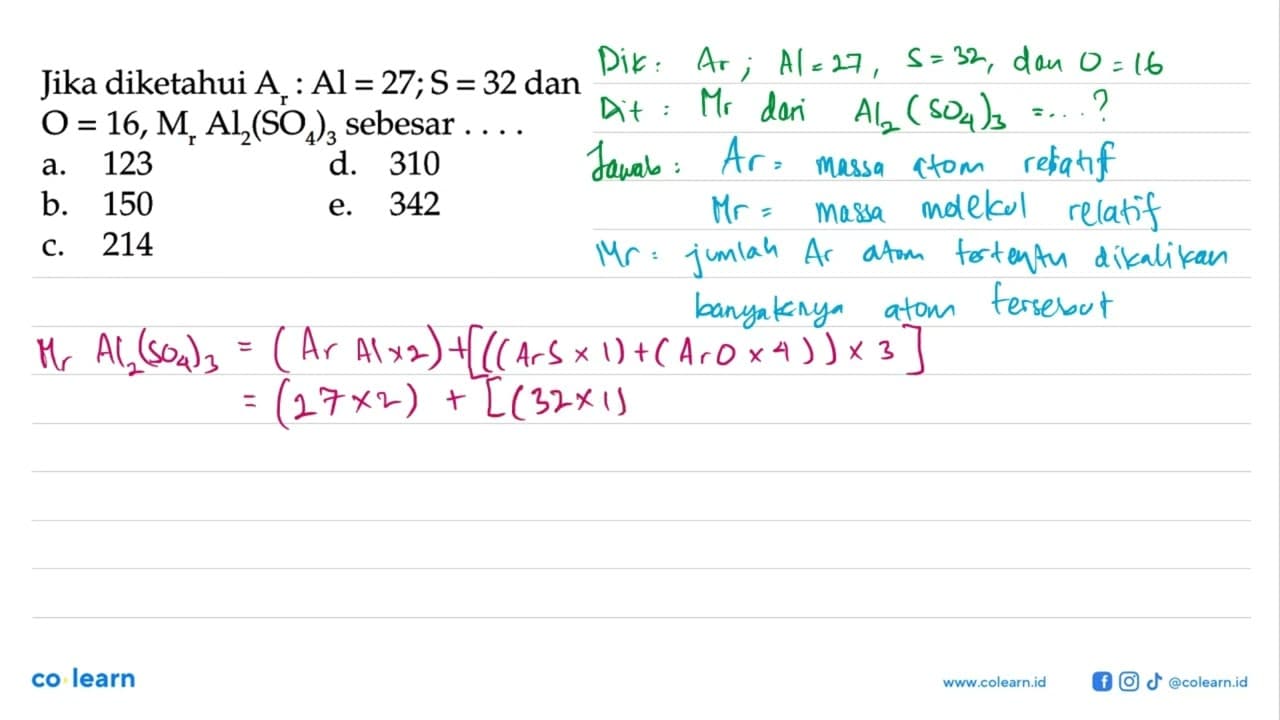 Jika diketahui Ar : Al = 27; S = 32 dan
O = 16, Mr Al2(SO4)3 sebesar . . . .
a. 123 d. 310
b. 150 e. 342
c. 214
Dik : Ar ; Al = 27, S = 32, dan O = 16
Dit : Mr dari Al2(SO4)3 = ... ?
Jawab : Ar = massa atom relatif
Mr = massa molekul relatif
Mr = jumlah Ar atom tertentu dikalikan
banyaknya atom tersebut
Mr Al2(SO4)3 = (Ar Al x 2) + [((Ar S x 1) + (Ar O x 4)) x 3]
= (27 x 2) + [(32 x 1)
co learn
www.colearn.id @colearn.id